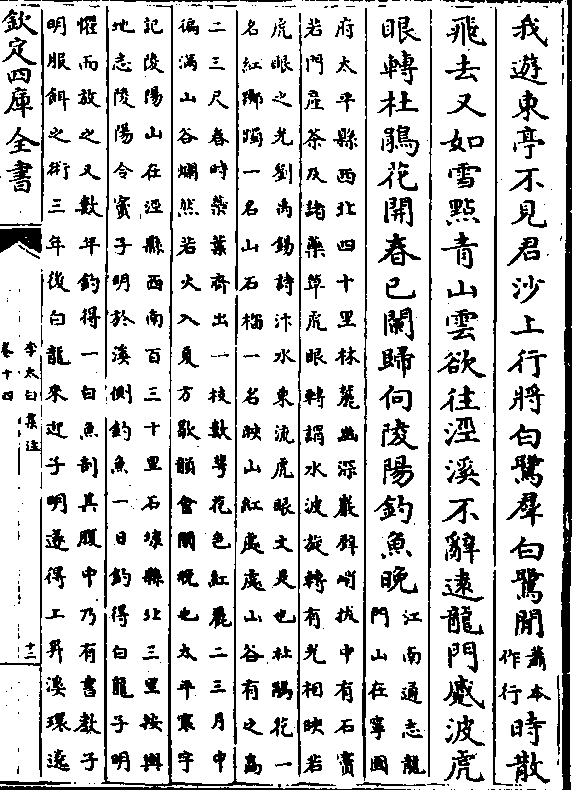 我遊東亭不見君沙上行將白鷺羣白鷺閒蕭本作行時散
飛去又如雪點青山雲欲往涇溪不辭遠龍門蹙波虎
眼轉杜鵑花開春已闌歸向陵陽釣魚晚
江南通志龍
門山在寧國
府太平縣西北四十里林麓幽深巖壁峭拔中有石竇
若門產茶及諸藥草虎眼轉謂水波旋轉有光相映若
虎眼之光劉禹錫詩汴水東流虎眼文是也杜鵑花一
名紅躑躅一名山石榴一名映山紅處處山谷有之高
二三尺春時蘂葉齊出一枝數萼花色紅麗二三月中
徧滿山谷爛然若火入夏方歇韻會闌晚也太平寰宇
記陵陽山在涇縣西南百三十里石埭縣北三里按輿
地志陵陽令竇子明於溪側釣魚一日釣得白龍子明
懼而放之又數年釣得一白魚剖其腹中乃有書教子
明服餌之術三年後白龍來迎子明遂得上昇溪環遶
欽定四庫全書
李太白集注
卷十四
十二